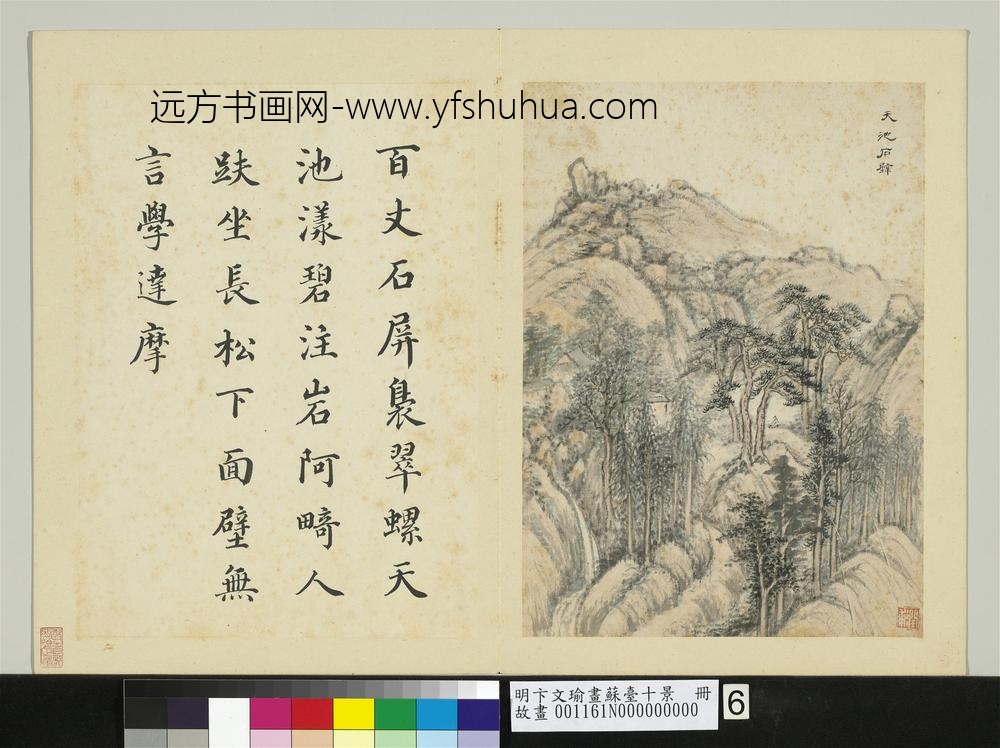 远方书画网-www.yfshuhua.com
天池石壁
百丈石屏裊翠螺天
池漾碧注岩阿畸人
趺坐長松下面壁無
言學達摩
明卞文瑜畫蘇臺十景 冊
故畫 001161N000000000
6